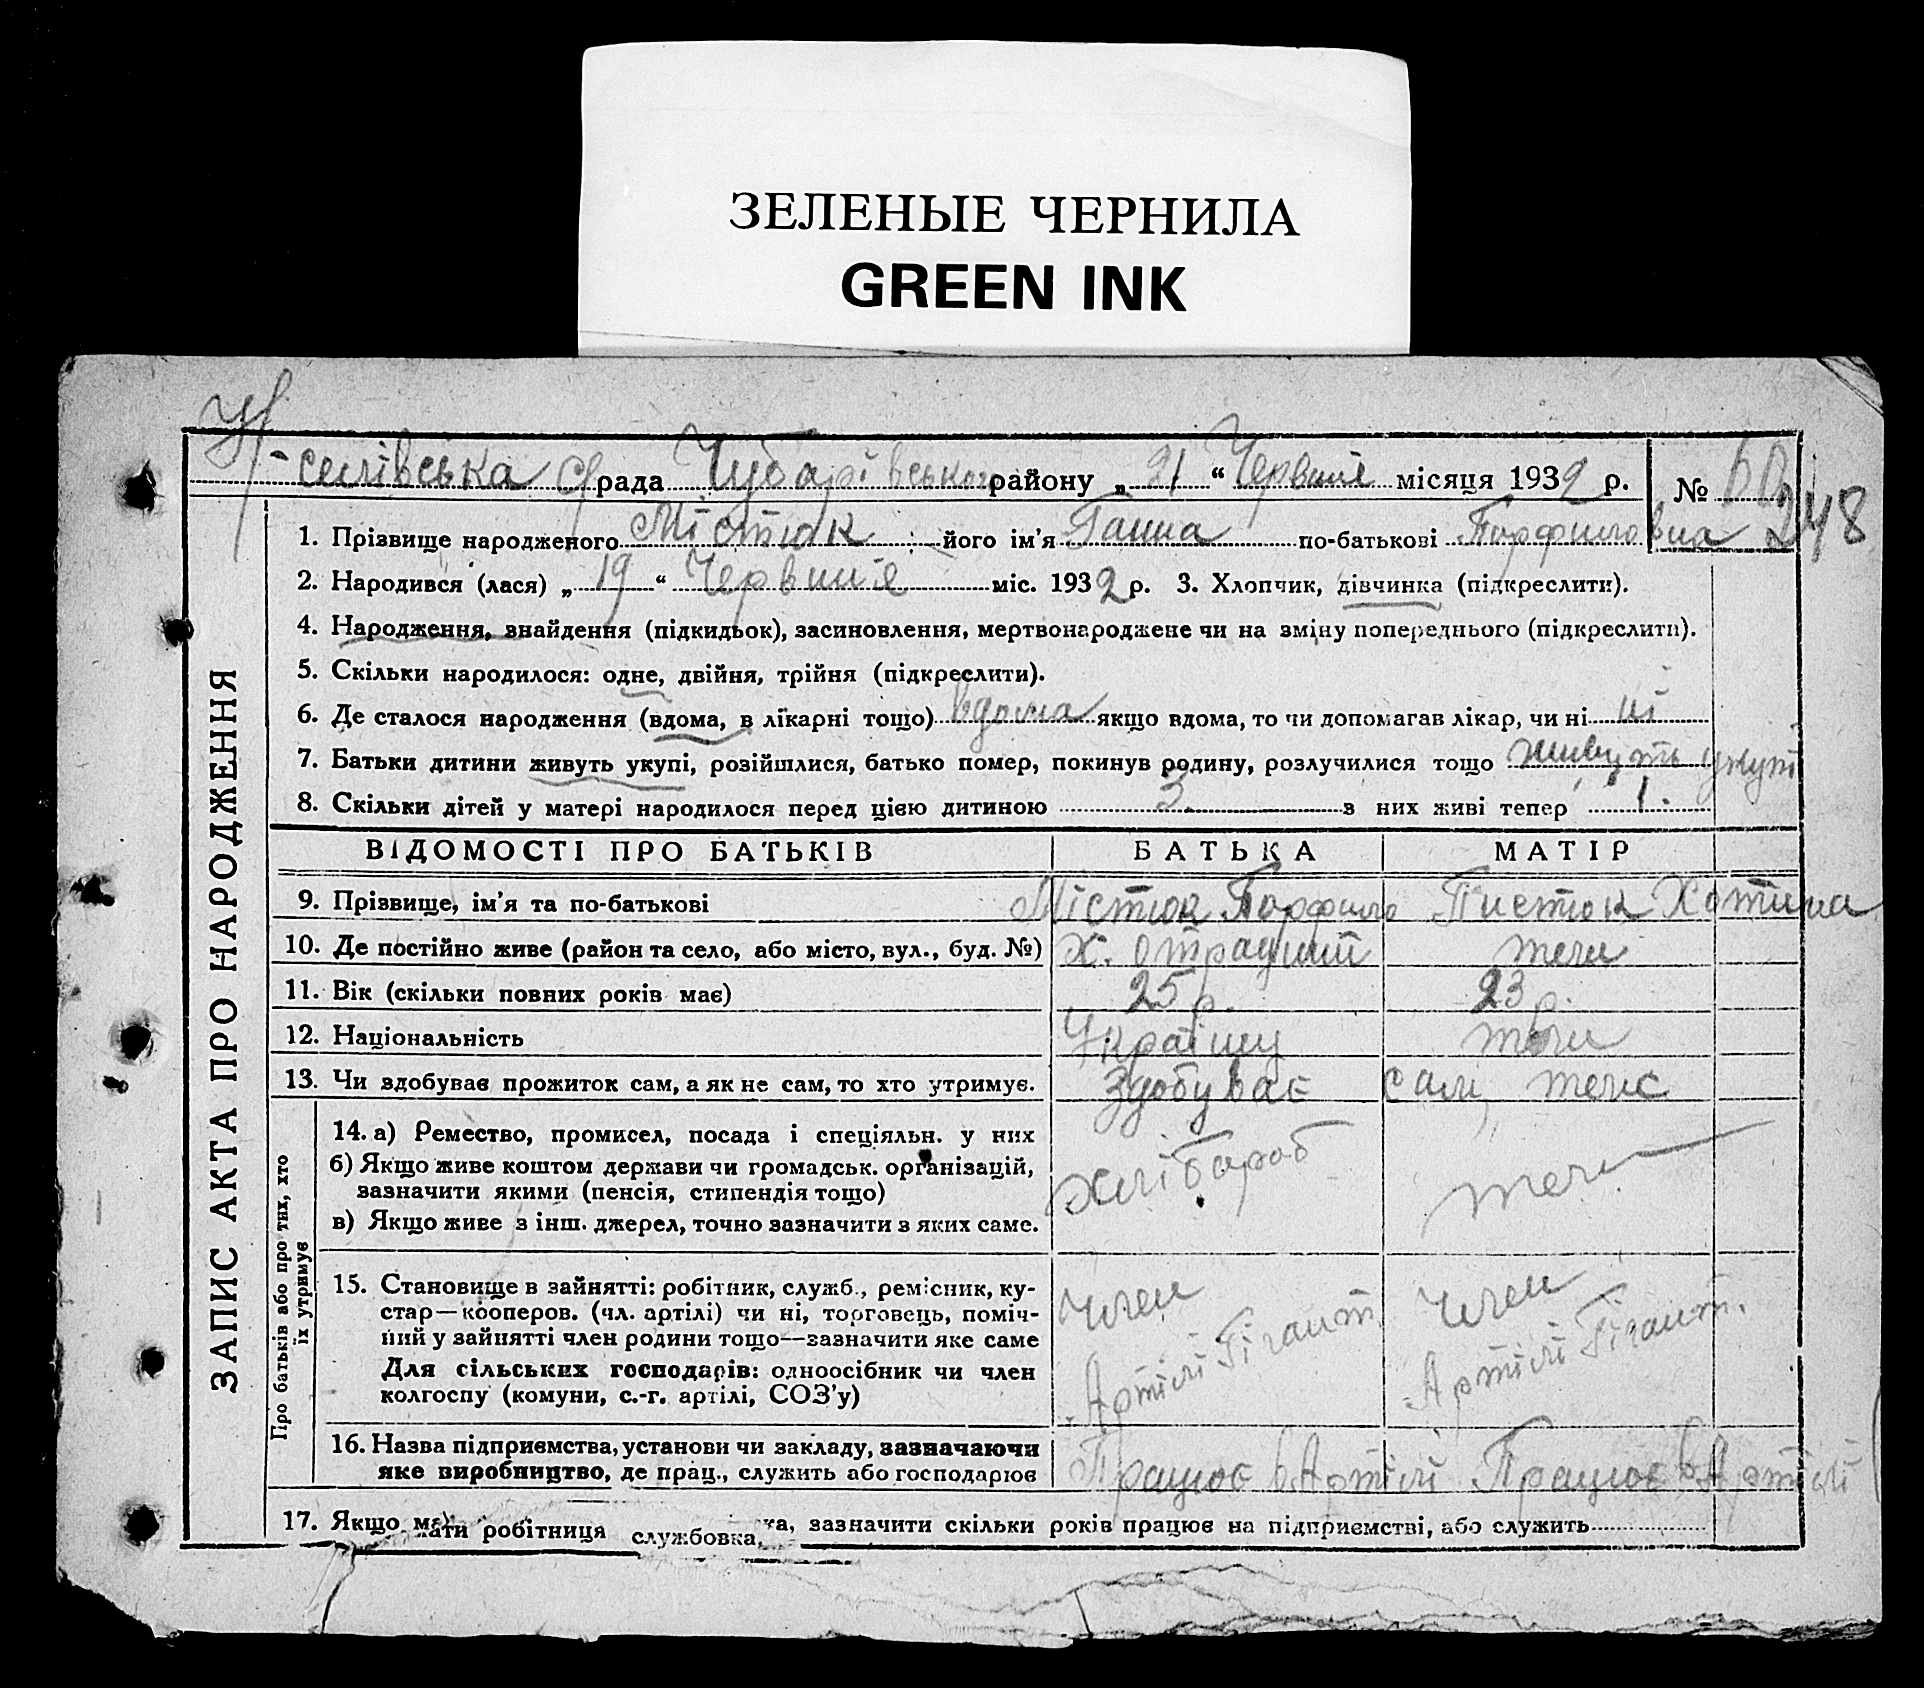 ЗЕЛЕНЫЕ ЧЕРНИЛА
GREEN INK
Н-селівська с/рада Чубарівського району „21“ Червня місяця 1932 р. № 60
248
1. Прізвище народженого Містюк його ім'я Ганна по-батькові Порфиловна
2. Народився (лася) „19“ Червня міс. 1932 р. 3. Хлопчик, дівчинка (підкреслити).
4. Народження, знайдення (підкидьок), засиновлення, мертвонароджене чи на зміну попереднього (підкреслити).
5. Скільки народилося: одне, двійня, трійня (підкреслити).
6. Де сталося народження (вдома, в лікарні тощо) вдома якщо вдома, то чи допомагав лікар, чи ні ні
7. Батьки дитини живуть укупі, розійшлися, батько помер, покинув родину, розлучилися тощо живуть укупі
8. Скільки дітей у матері народилося перед цією дитиною 3 з них живі тепер 1.
ВІДОМОСТІ ПРО БАТЬКІВ БАТЬКА МАТІР
9. Прізвище, ім'я та по-батькові Містюк Порфило Пистюк Хотина
10. Де постійно живе (район та село, або місто, вул., буд. №) х. отрадний теж
11. Вік (скільки повних років має) 25 р. 23 р.
12. Національність Українц теж
13. Чи здобував прожиток сам, а як не сам, то хто утримує. Здобуває сам, теж
14. а) Ремество, промисел, посада і спеціяльн. у них
б) Якщо живе коштом держави чи громадськ. організацій,
зазначити якими (пенсія, стипендія тощо) Хлібароб теж
в) Якщо живе з інш. джерел, точно зазначити з яких саме.
15. Становище в зайнятті: робітник, служб., ремісник, ку-
стар—кооперов. (чл. артілі) чи ні, торговець, поміч- Член Член
ний у зайнятті член родини тощо—зазначити яке саме
Для сільських господарів: одноосібник чи член Артілі Гігант. Артілі Гігант.
колгоспу (комуни, с.-г. артілі, СОЗ'у)
16. Назва підприємства, установи чи закладу, зазначаючи
яке виробництво, де прац., служить або господарює Працює в Артілі Працює в Артілі
17. Якщо мати робітниця службовка, зазначити скільки років працює на підприємстві, або служить
ЗАПИС АКТА ПРО НАРОДЖЕННЯ
Про батьків або про тих, хто
їх утримує